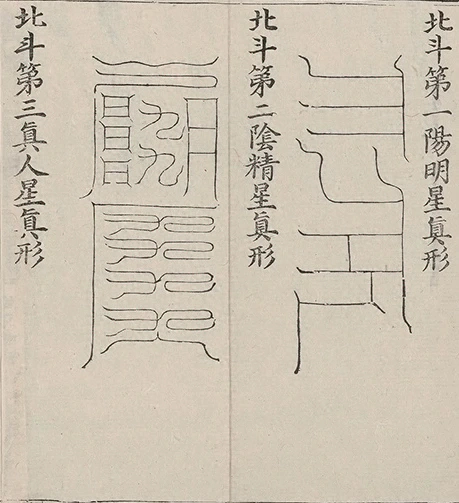 北斗第一陽明星眞形
北斗第二陰精星眞形
北斗第三眞人星眞形